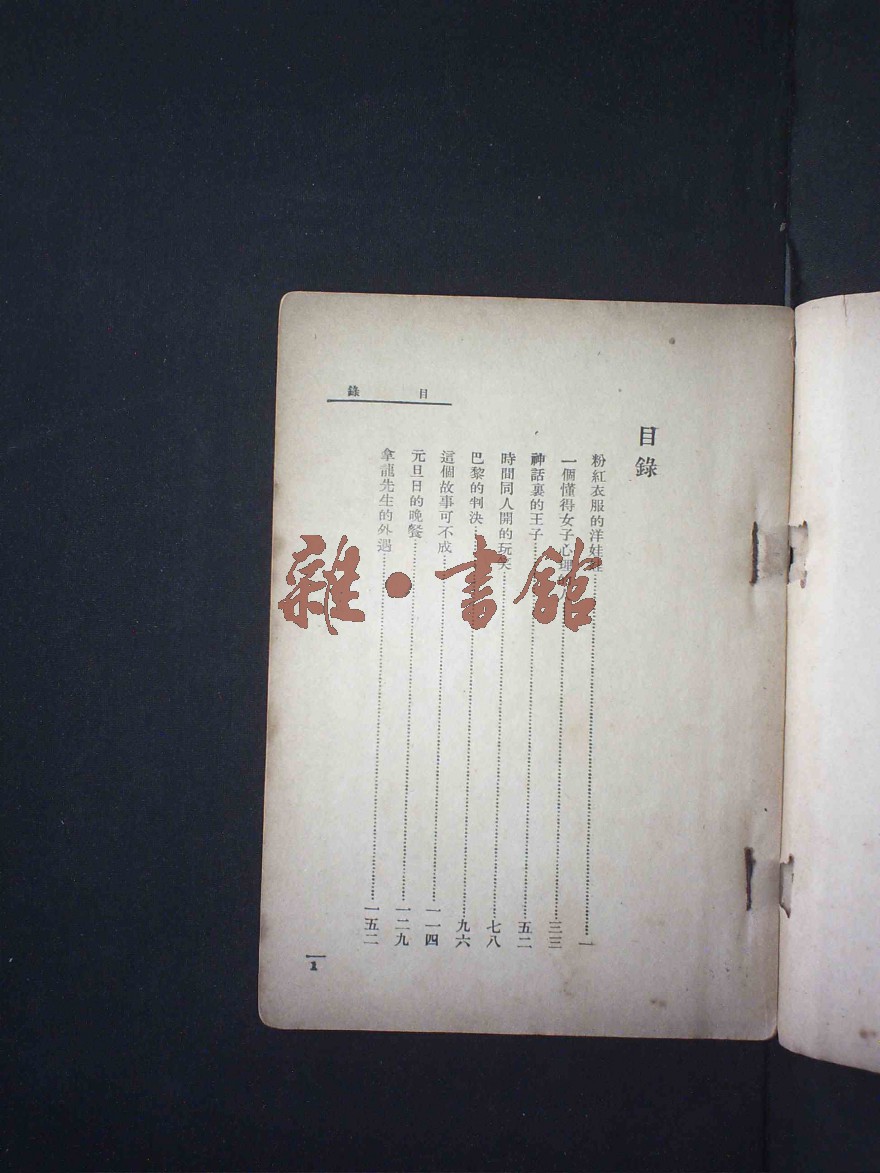 目錄
目錄
粉紅衣服的洋娃娃……一
一個懂得女子心理……三三
神話裏的王子……五二
時間同人開的玩笑……七八
巴黎的判決……九六
這個故事可不成……一一四
元旦日的晚餐……一二九
拿龍先生的外遇……一五二
1
雜·書館